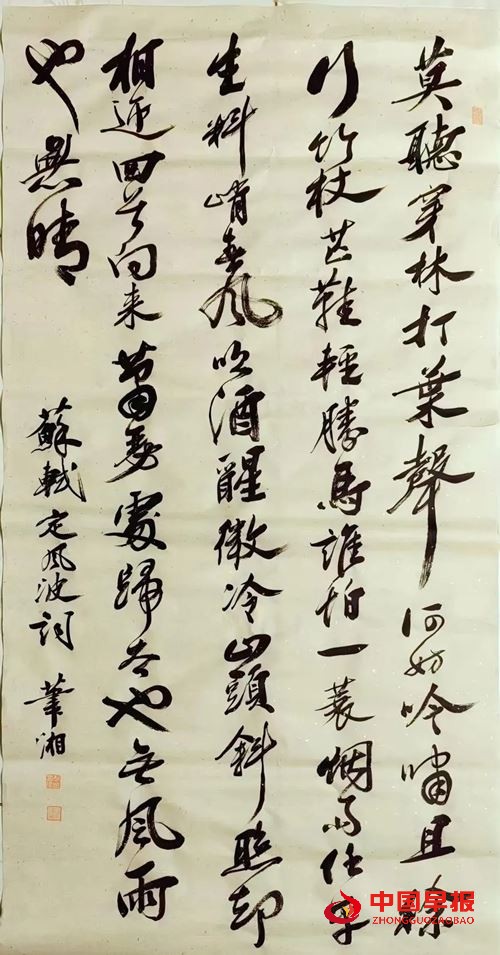 莫聽穿林打葉聲何妨吟嘯且徐
行竹杖芒鞋輕勝馬誰怕一蓑烟雨任平
生料峭春風吹酒醒微冷山頭斜照却
相迎回首向来蕭瑟處歸去也无風雨
也無晴
蘇軾定風波詞 湘
中国早报
ZHONGGUOZAOBAO